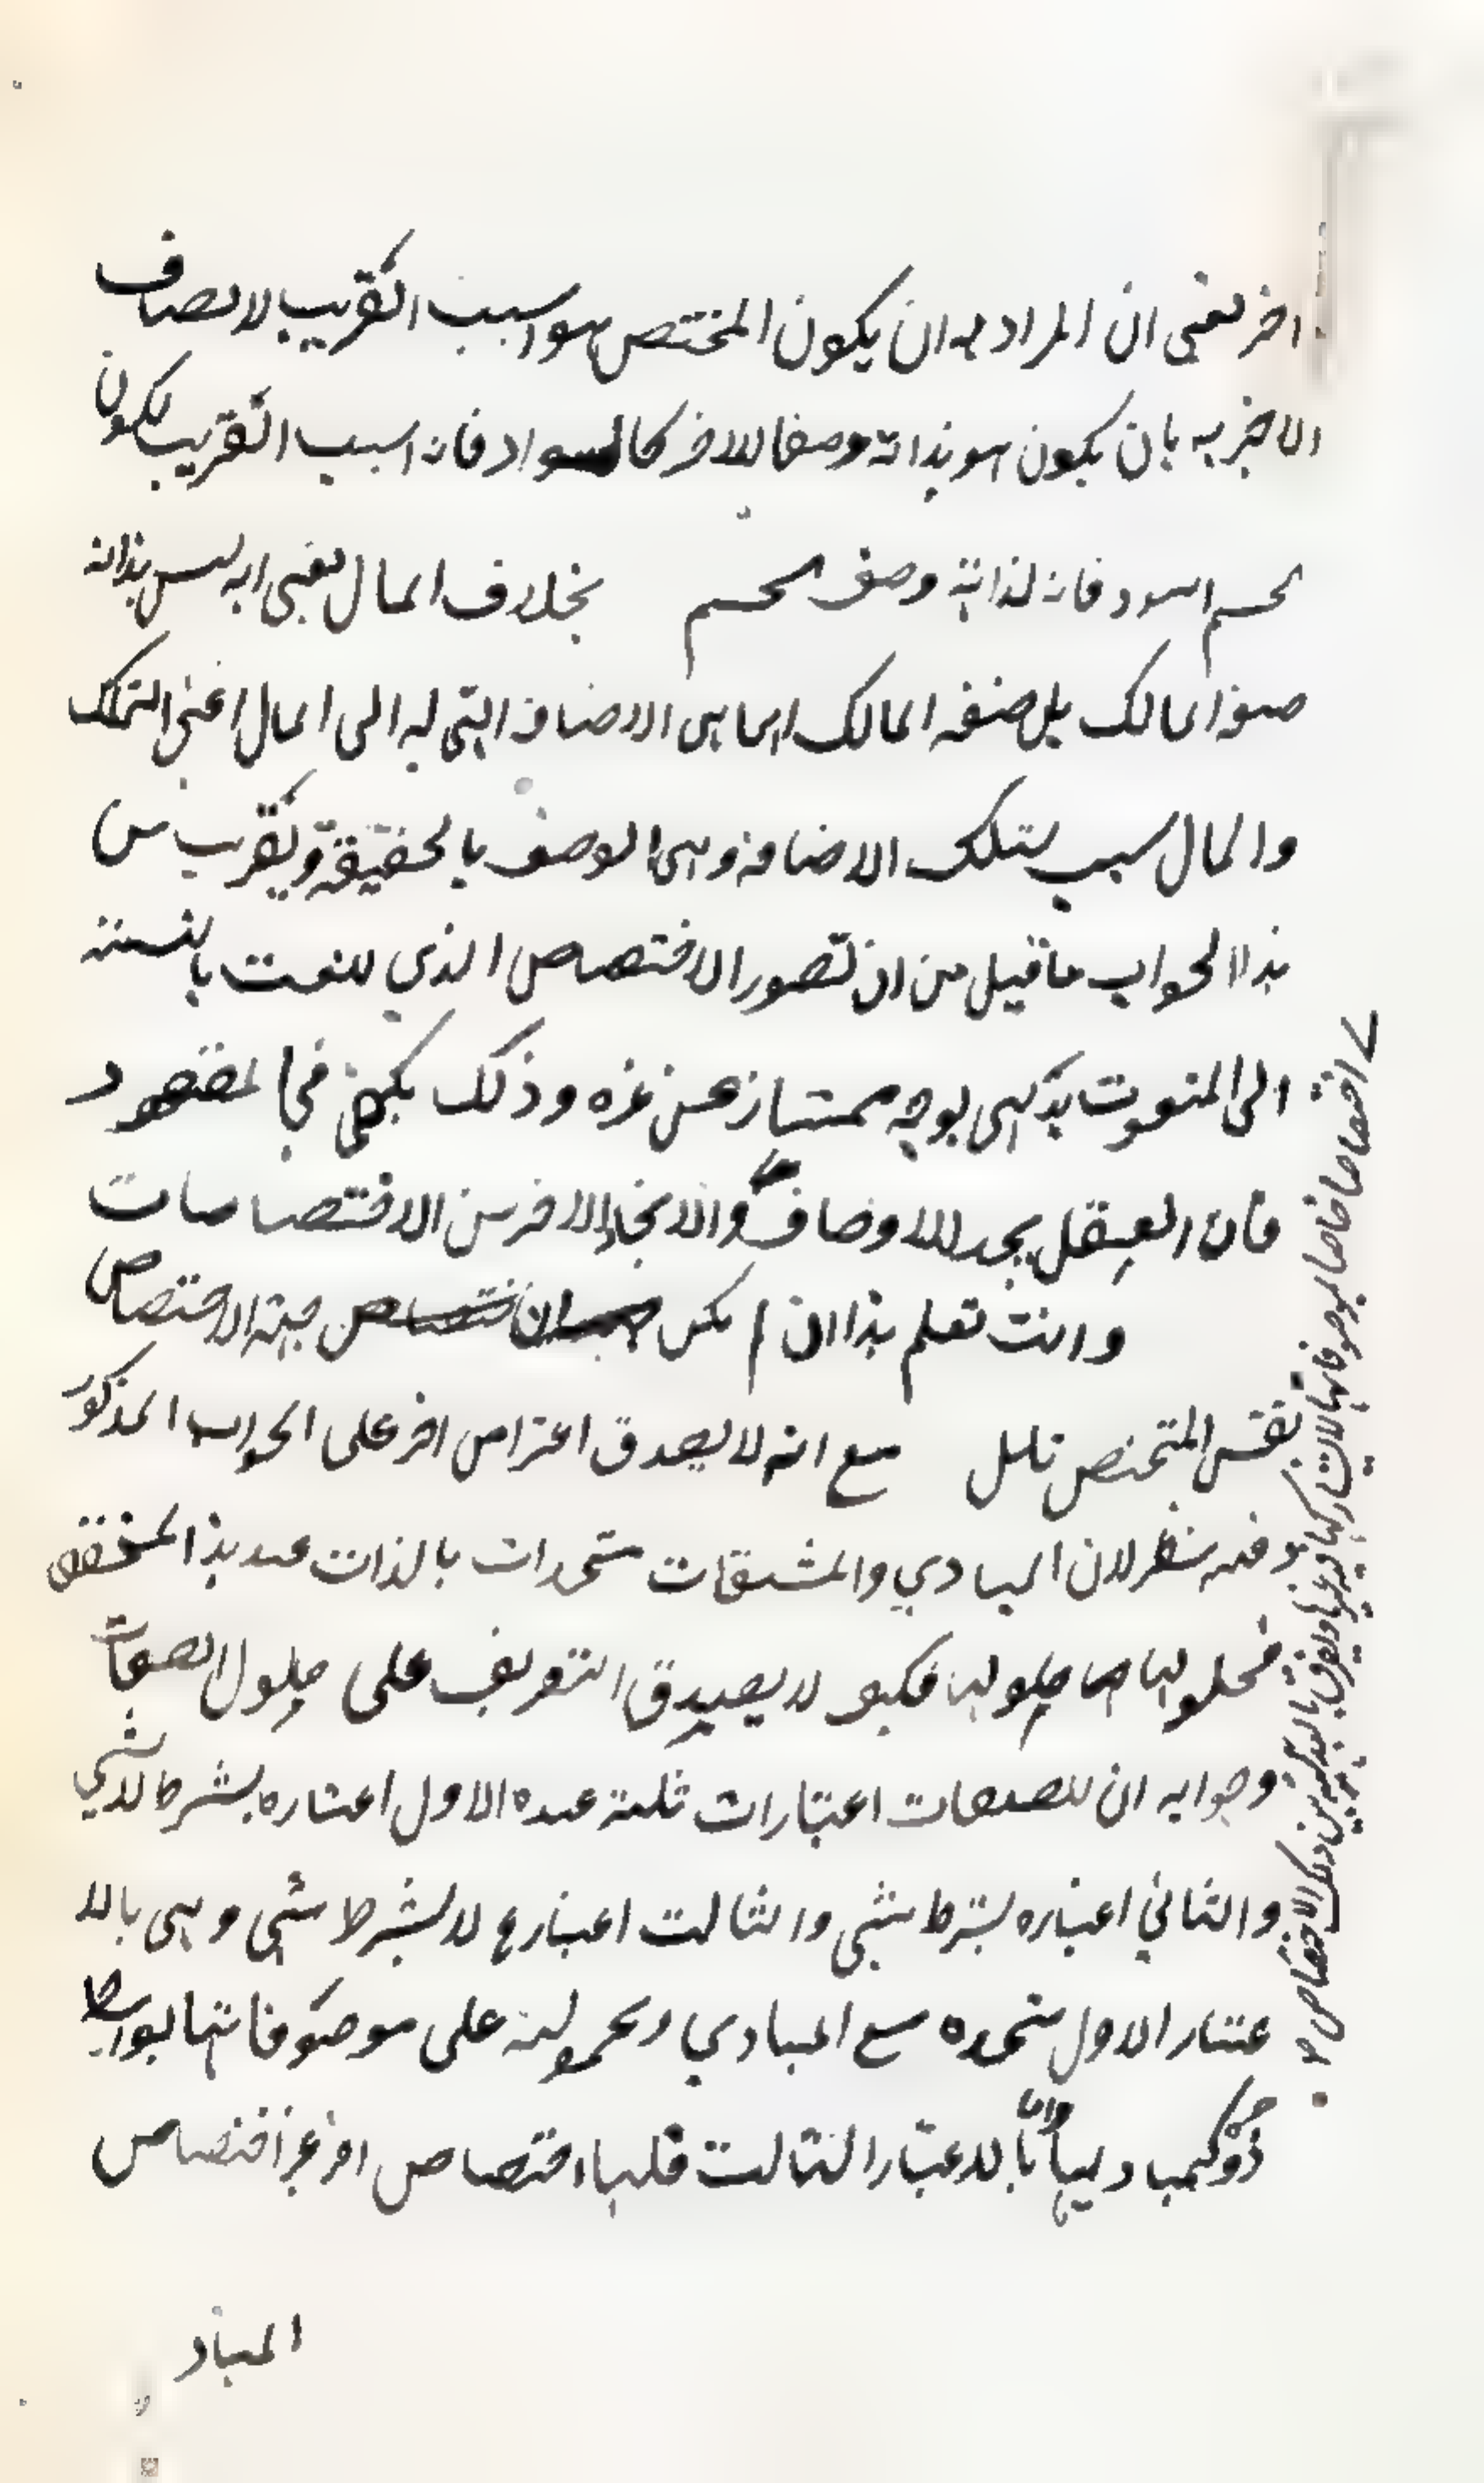 اخر يعني ان المراد به ان يكون المختص هو السبب القريب لاتصاف
الاخر به بان يكون هو بذاته وصفا للاخر كالسواد فانه السبب القريب لكون
الجسم اسود فانه لذاته وصف الجسم بخلاف المال يعني انه ليس بذاته
صفة المالك بل صفة المالك انما هي الاضافة التي له الى المال اعني التملك
والمال سبب لتلك الاضافة وهي الوصف بالحقيقة ويقرب من
هذا الجواب ما قيل من ان تصور الاختصاص الذي للنعت بالنسبة
الى المنعوت بديهي بوجه ممتاز عن غيره وذلك يكفي في المقصود
فان العقل يجد للاوصاف والانحاء الاخر من الاختصاصات
وانت تعلم هذا ان لم يكن جهة الاختصاص
بنفس المختص تامل مع انه لا يصدق اعتراض اخر على الجواب المذكور
وفيه نظر لان المبادي والمشتقات متحدات بالذات عند هذا المحقق
فحلولها حلولها فكيف لا يصدق التعريف على حلول الصفات
وجوابه ان للصفات اعتبارات ثلثة عنده الاول اعتباره بشرط لا شي
والثاني اعتباره بشرط شي والثالث اعتبارها لا بشرط شي وهي بالا
عتبار الاول متحده مع المبادي ومحمولة على موصوفاتها بواسطة
ذو كمباديها واما بالاعتبار الثالث فلها اختصاص اخر غير اختصاص
المباد
اختصاصا خاصا بموصوفاتها لا يشاركها فيه غيرها